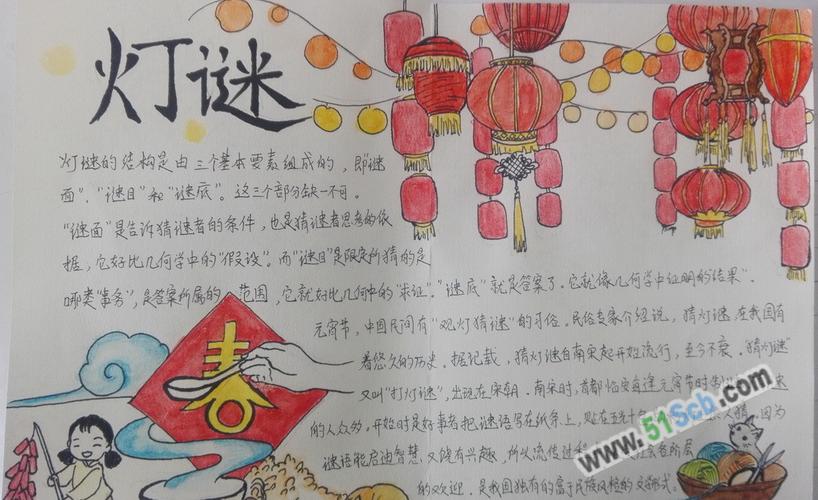 灯谜
灯谜的结构是由三个基本要素组成的，即"谜
面"、"谜目"和"谜底"。这三个部分缺一不可。
"谜面"是告诉猜谜者的条件，也是猜谜者思考的依
据，它好比几何学中的"假设"。而"谜目"是限定所猜的是
哪类"事务"，是答案所属的范围，它就好比几何中的"求证"。"谜底"就是答案了。它就像几何学中证明的结果"。
元宵节，中国民间有"观灯猜谜"的习俗。民俗专家介绍说，猜灯谜在我国有
着悠久的历史。据记载，猜灯谜自南宋起开始流行，至今不衰。猜灯谜"
又叫"打灯谜"，出现在宋朝。南宋时，首都临安每逢元宵节时制
的人众多，开始时是好事者把谜语写在纸条上，贴在五 人猜。因为
谜语能启迪智慧又饶有兴趣，所以流传过 各阶层
的欢迎。是我国独有的富于民族风格的文 形式。
春
www.51Scb.com